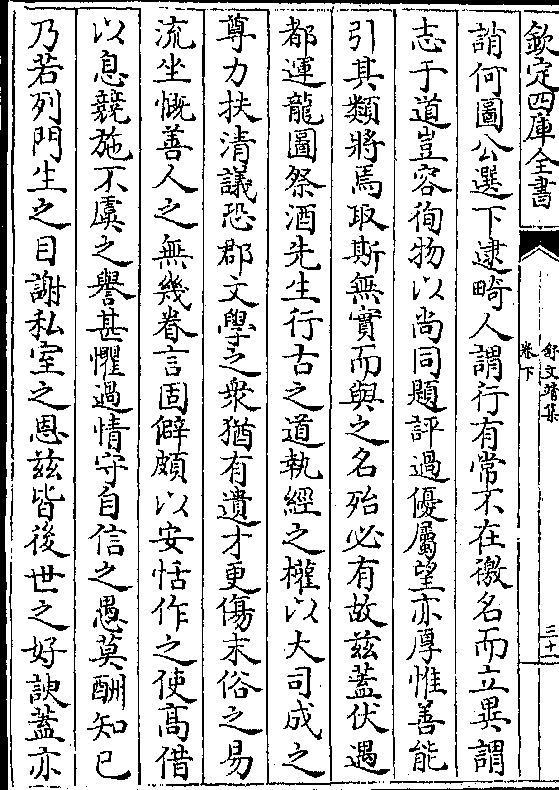 欽定四庫全書
舒文靖集
卷下
三十一
誚何圖公選下逮畸人謂行有常不在徼名而立異謂
志于道豈容徇物以尚同題評過優屬望亦厚惟善能
引其類將焉取斯無實而與之名殆必有故茲蓋伏遇
都運龍圖祭酒先生行古之道執經之權以大司成之
尊力扶清議恐郡文學之衆猶有遺才更傷末俗之易
流坐慨善人之無幾眷言固僻頗以安恬作之使髙借
以息競施不虞之譽甚懼過情守自信之愚莫酬知已
乃若列門生之目謝私室之恩茲皆後世之好諛蓋亦